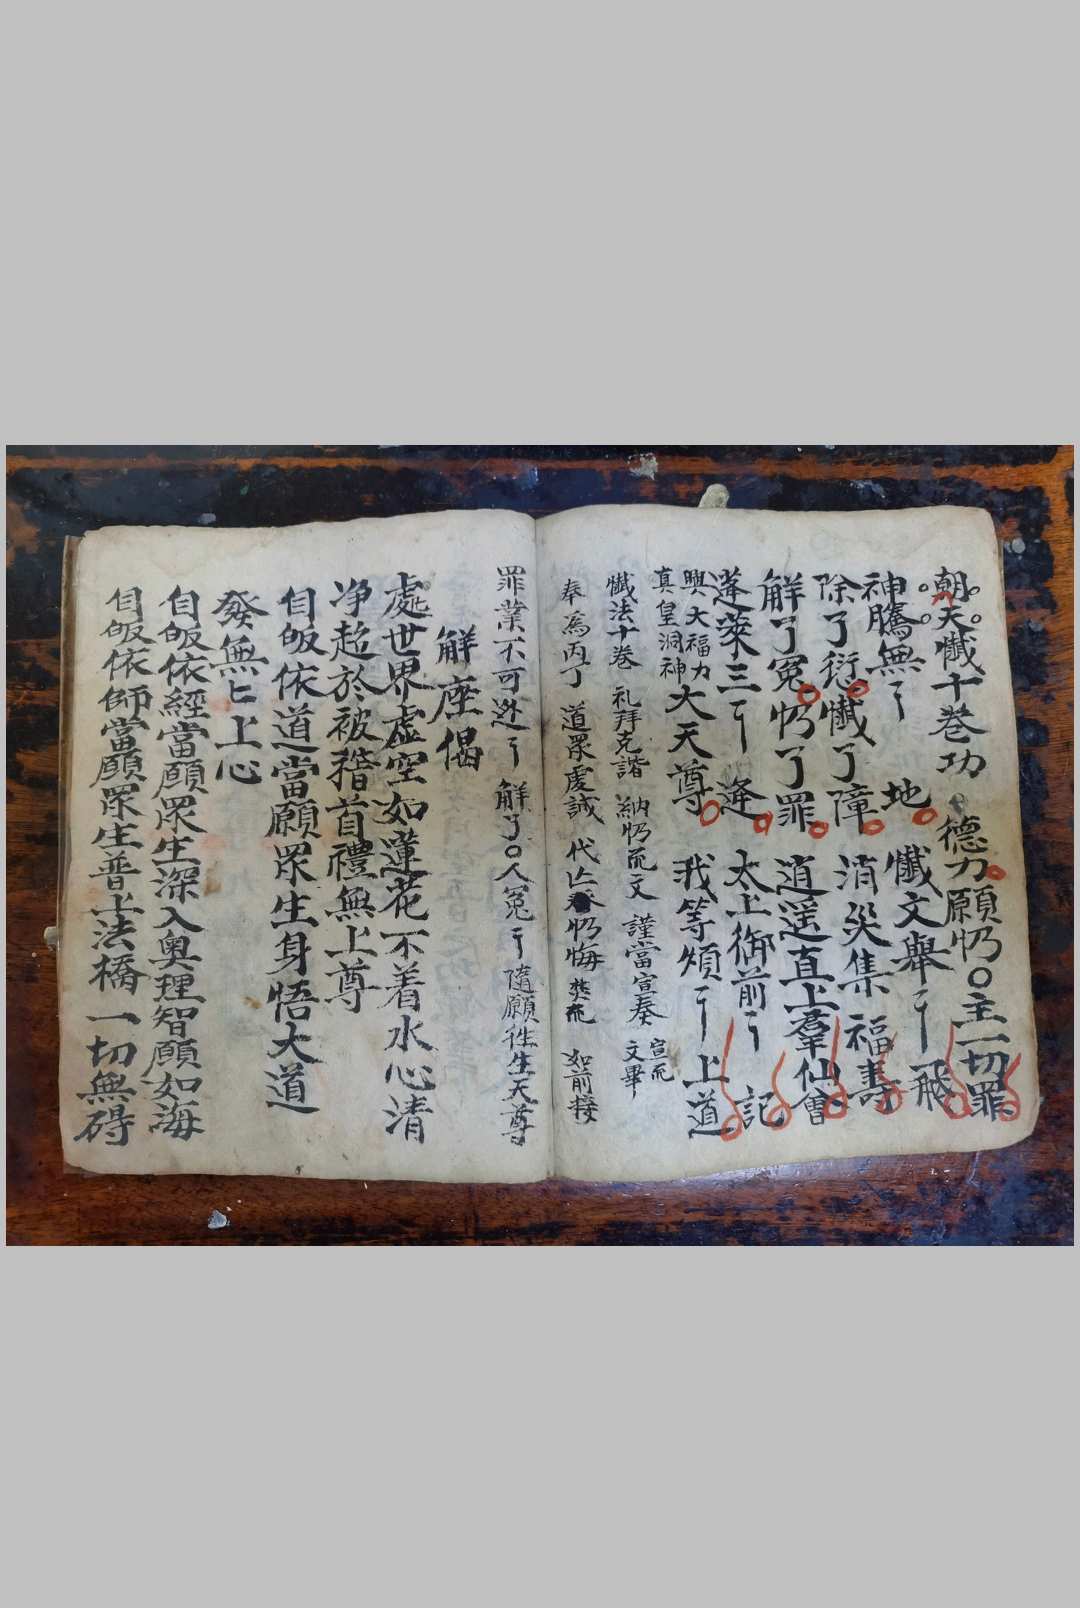 朝天懺十卷功德力願懺〇主一切罪
神騰無〻地 懺文舉〻飛
除了衍懺了障 消災集福壽
解了冤懺了罪 逍遥直上羣仙會
蓬萊三〻逢 太上御前〻記
興大福力
真皇洞神
大天尊 我等傾〻上道
懺法十卷 礼拜克諧 納 文 謹當宣奏
宣
文畢
奉為丙丁 道眾虔誠 代 悔焚 如前接
罪業不可逃〻 解了〇人冤〻隨願徃生天尊
解座偈
處世界虛空如蓮花不着水心清
净超於被稽首禮無上尊
自皈依道當願眾生身悟大道
發無匕上心
自皈依經當願眾生深入奥理智願如海
自皈依師當願眾生普上法橋一切無碍